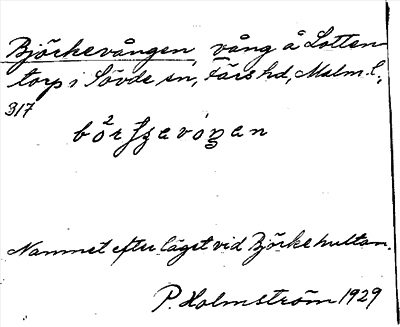 Björkevången, vång å Lotten-
torp i Sövde sn, Färs hd, Malm. l.,
317
Namnet efter läget vid Björkehultan.
P. Holmström 1929